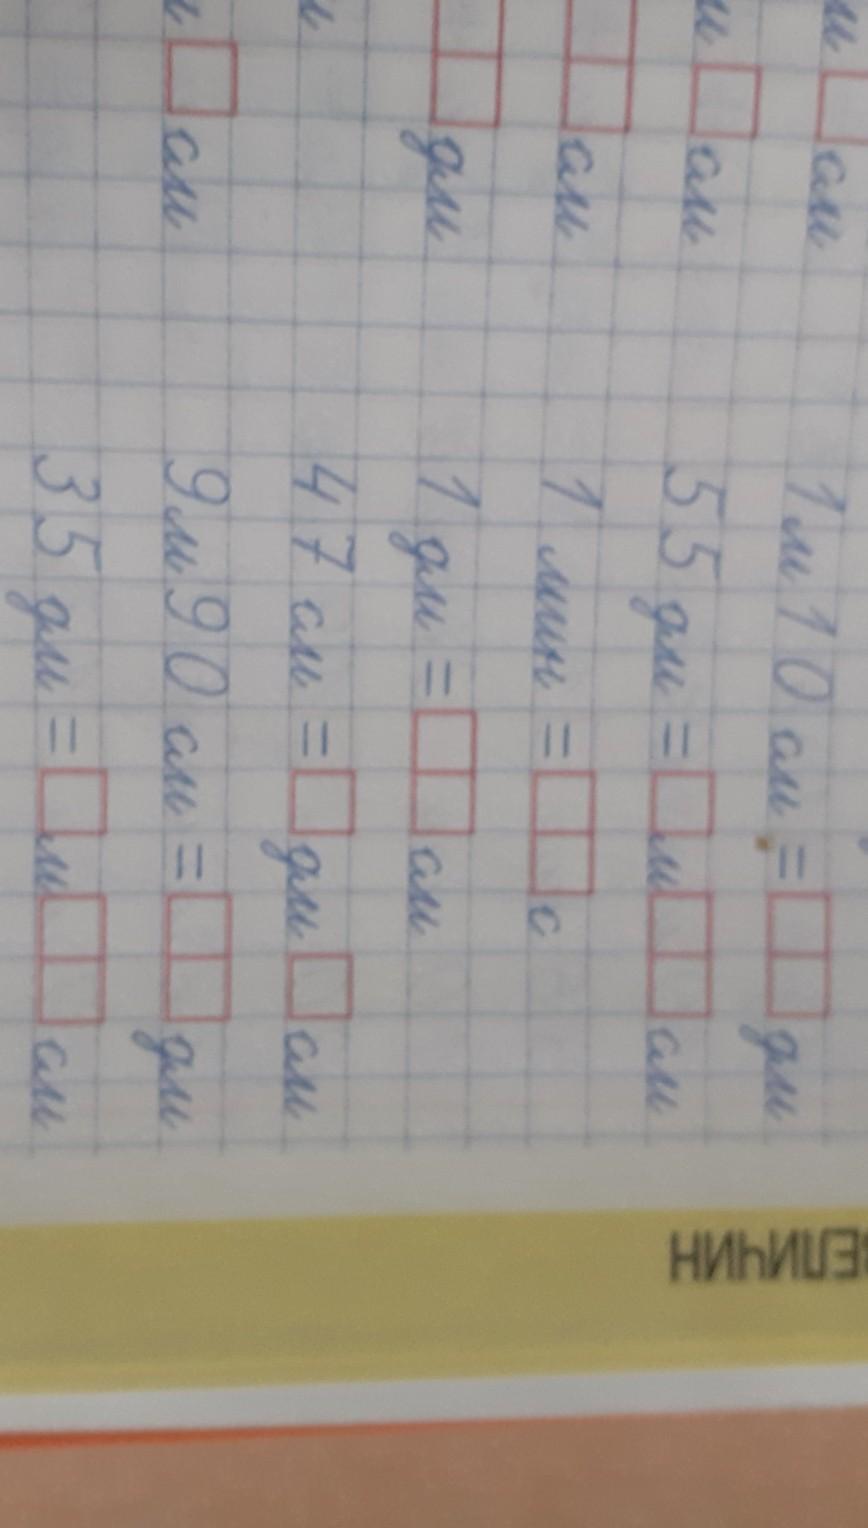 см 1 м 10 см = □□ дм
□ см 55 дм = □ м □□ см
□□ см 1 мин = □□ с
□□ дм 1 дм = □□ см
47 см = □ дм □ см
□ см 9 м 90 см = □□ дм
35 дм = □ м □□ см
ЕЛИЧИН